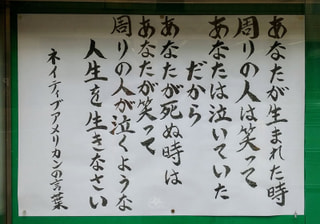 あなたが生まれた時
周りの人は笑って
あなたは泣いていた
だから
あなたが死ぬ時は
あなたが笑って
周りの人が泣くような
人生を生きなさい
ネイティブアメリカンの言葉